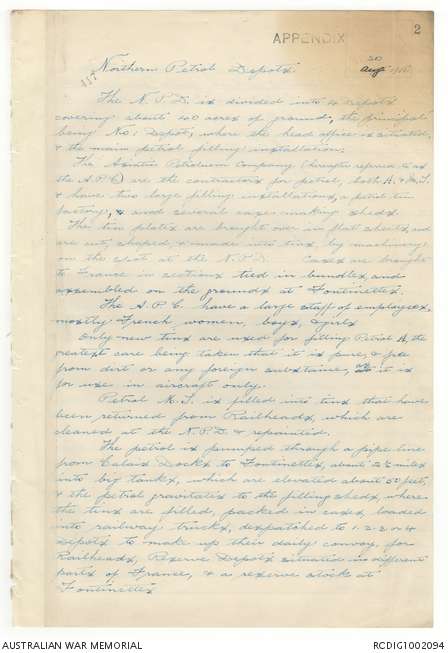 2
APPENDIX
20
Aug 1918
417
Northern Petrol Depots
The N.P.D. is divided into 4 Depots
covering about 40 acres of ground, the principal
being No 1 Depot, where the head office is situated,
& the main petrol filling installation.
The Asiatic Petroleum Company (hereafter refered to as
the A.P.C) are the contractors for petrol, both A. & M.T.
& have two large filling installations, a petrol tin
factory, & and several case making sheds.
The tin plates are brought over in flat sheets, and
are cut, shaped & made into tins by machinery
on the spot at the N.P.D. Cases are brought
to France in sections tied in bundles, and
assembled on the grounds at Fontinettes.
The A.P.C. have a large staff of employees,
mostly French, women, boys, & girls
Only new tins are used for filling Petrol A, the
greatest care being taken that it is pure, & free
from dirt or any foreign substance, as it is
for use in aircraft only.
Petrol M.T. is filled into tins that have
been returned from Railheads, which are
cleaned at the N.P.D. & repainted.
The petrol is pumped through a pipe line
from Calais Docks to Fontinettes, about 2½ miles
into big tanks, which are elevated about 50 feet,
& the petrol gravitates to the filling sheds, where
the tins are filled, packed in cases loaded
into railway trucks, despatched to 1.2.3 or 4
Depots to make up their daily convoy, for
Railheads, Reserve Depots situated in different
parts of France, & a reserve stock at
Fontinettes
AUSTRALIAN WAR MEMORIAL
RCDIG1002094